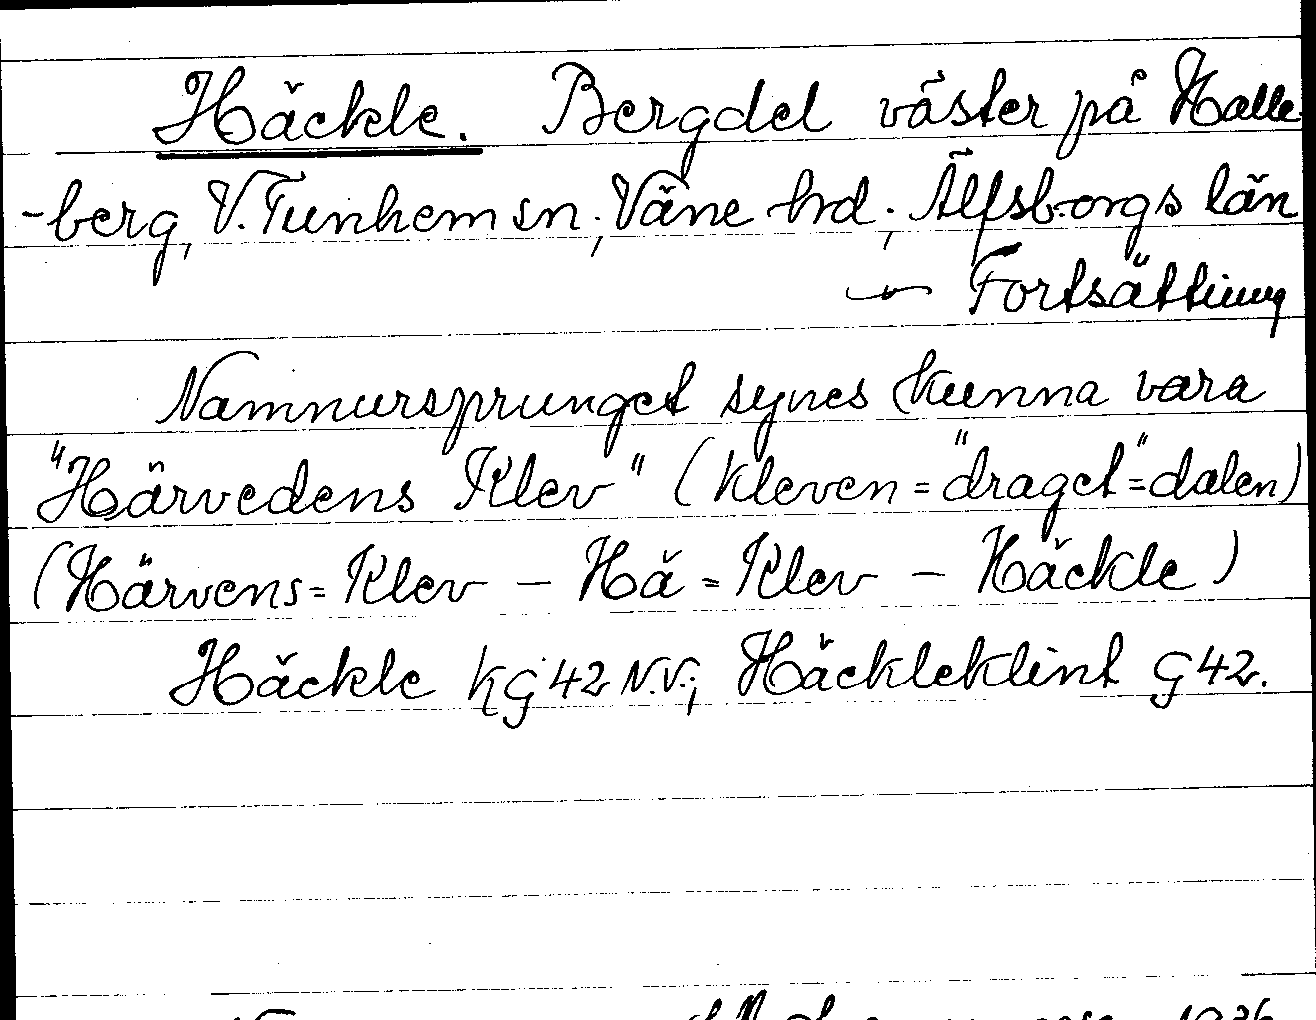 Häckle. Bergdel väster på Halle-
-berg, V. Tunhem sn; Väne hd; Älfsborgs län
— Fortsättning
Namnursprunget synes kunna vara
"Härvedens Klev" (kleven = "draget" = dalen)
(Härvens = Klev — Hä = Klev — Häckle)
Häckle kg 42 N.V.; Häckleklint G 42.